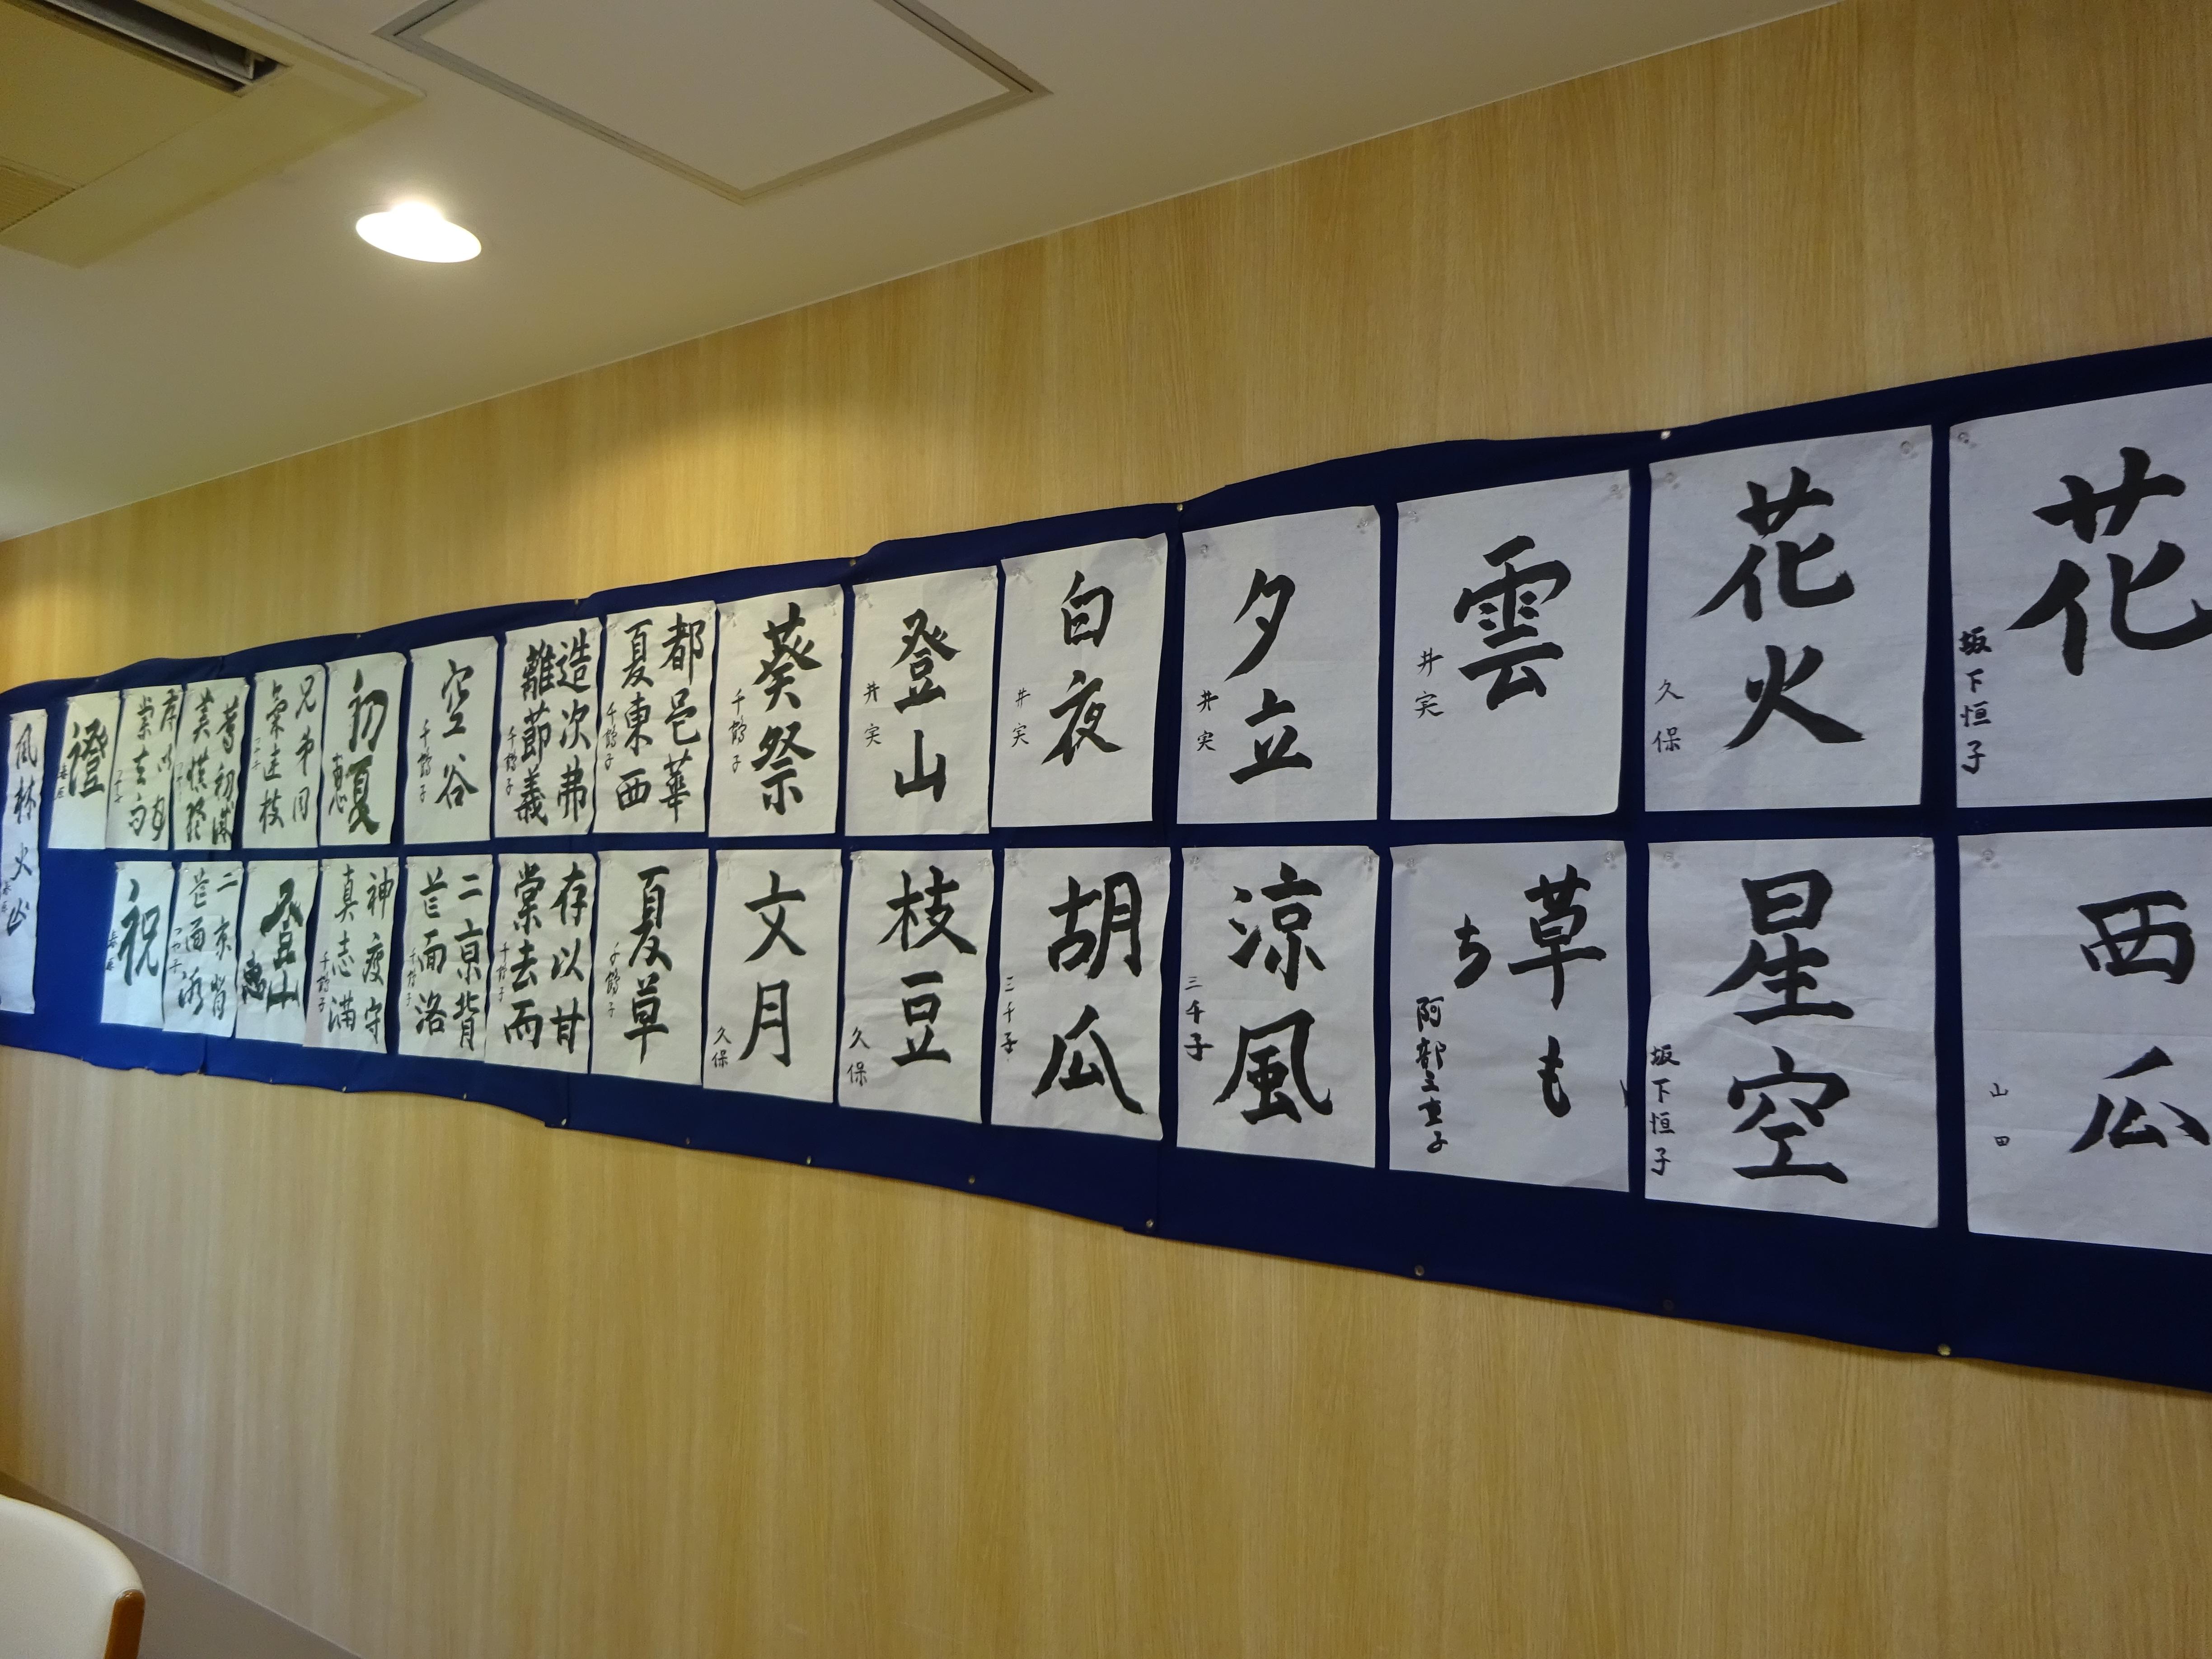 花
坂下恒子
花火
久保
雲
井実
夕立
井実
白夜
井実
登山
井実
葵祭
千鶴子
都邑華
夏東西
千鶴子
造次弗
離節義
千鶴子
空谷
千鶴子
初夏
恵
兄弟同
氣連枝
澄
風林火山
西瓜
山田
星空
坂下恒子
草も
ち
涼風
三千子
胡瓜
三千子
枝豆
久保
文月
久保
夏草
千鶴子
存以甘
棠去而
千鶴子
二京背
芒面洛
千鶴子
神疲守
真志満
千鶴子
登山
恵
祝